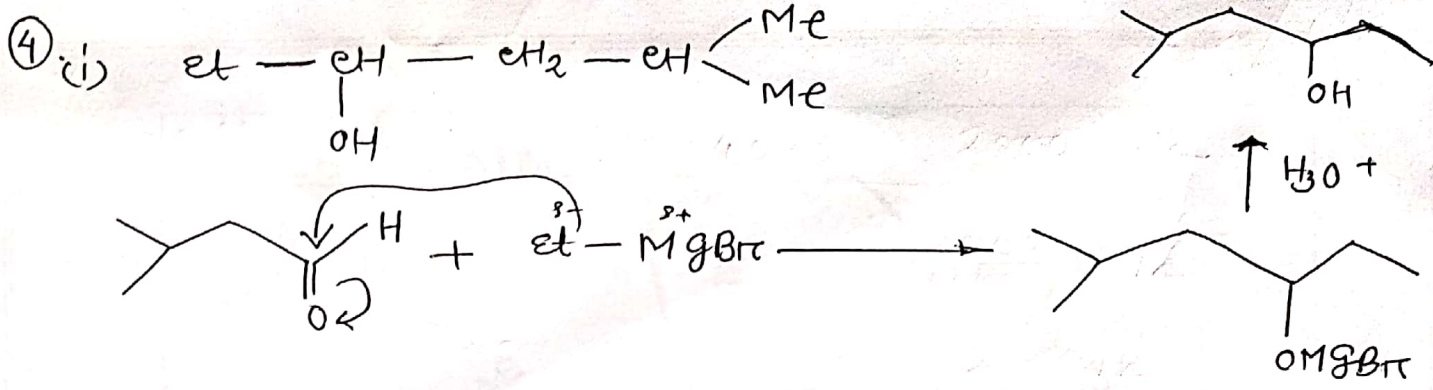 ④.(i) Et — CH — CH2 — CH Me
Me
OH
OH
H3O +
H + Et — MgBr
δ+ δ+
O
OMgBr